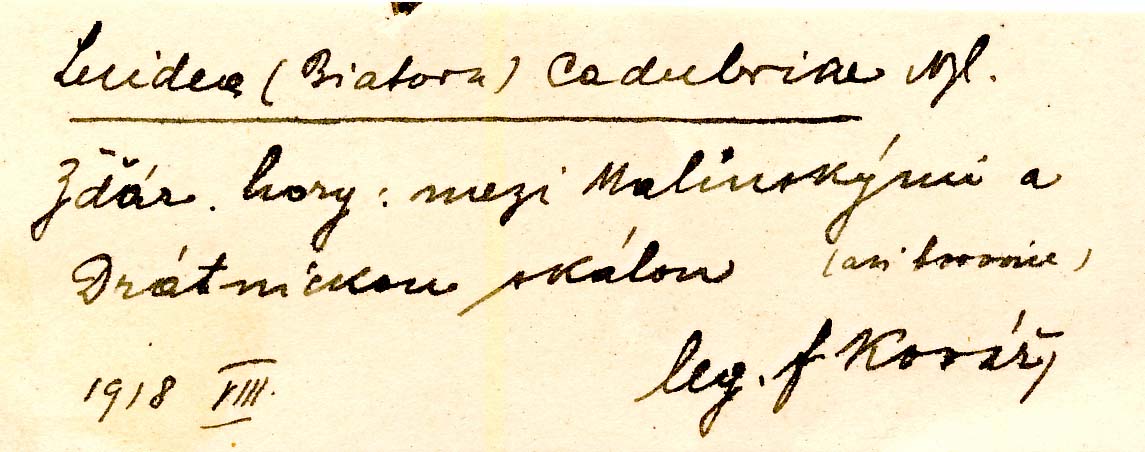 Lecidea (Biatora) Cadubriae Nyl.
Žďár. hory: mezi Malínskými a
Drátníckou skálou (asi borovice)
1918 VIII. leg. F Kovář,